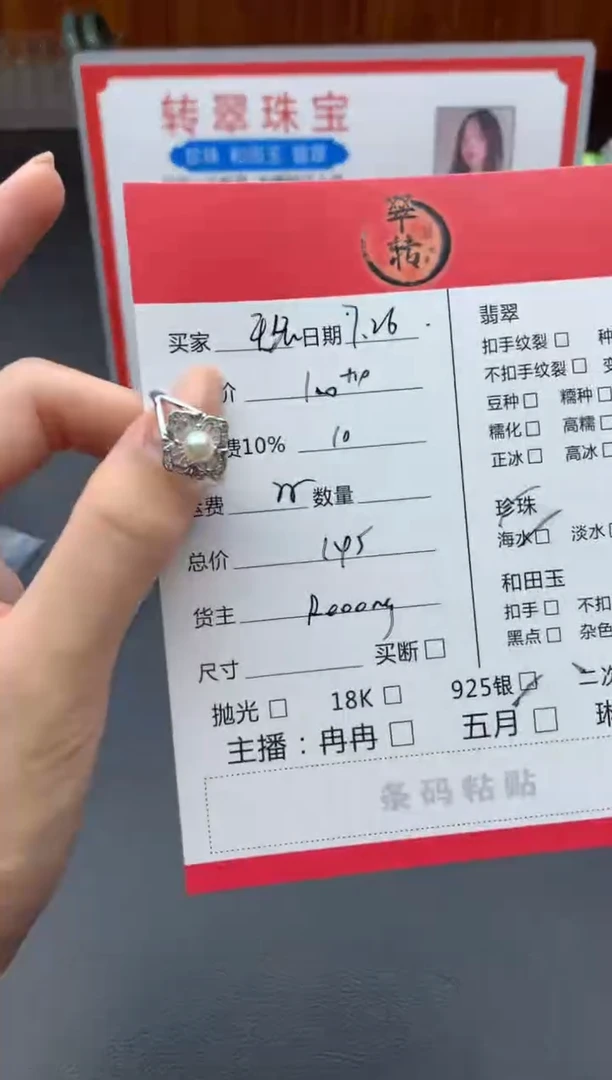 转翠珠宝
珍珠 和田玉 翡翠
翠
转
买家 日期 7.26
价
费10% 10
运费 数量
总价 145
货主
尺寸 买断 □
抛光 □ 18K □ 925银 □ 二次
主播：冉冉 □ 五月 □ 琳
条码粘贴
翡翠
扣手纹裂 □ 种
不扣手纹裂 □ 变
豆种 □ 糯种 □
糯化 □ 高糯 □
正冰 □ 高冰 □
珍珠
海水 □ 淡水 □
和田玉
扣手 □ 不扣
黑点 □ 杂色